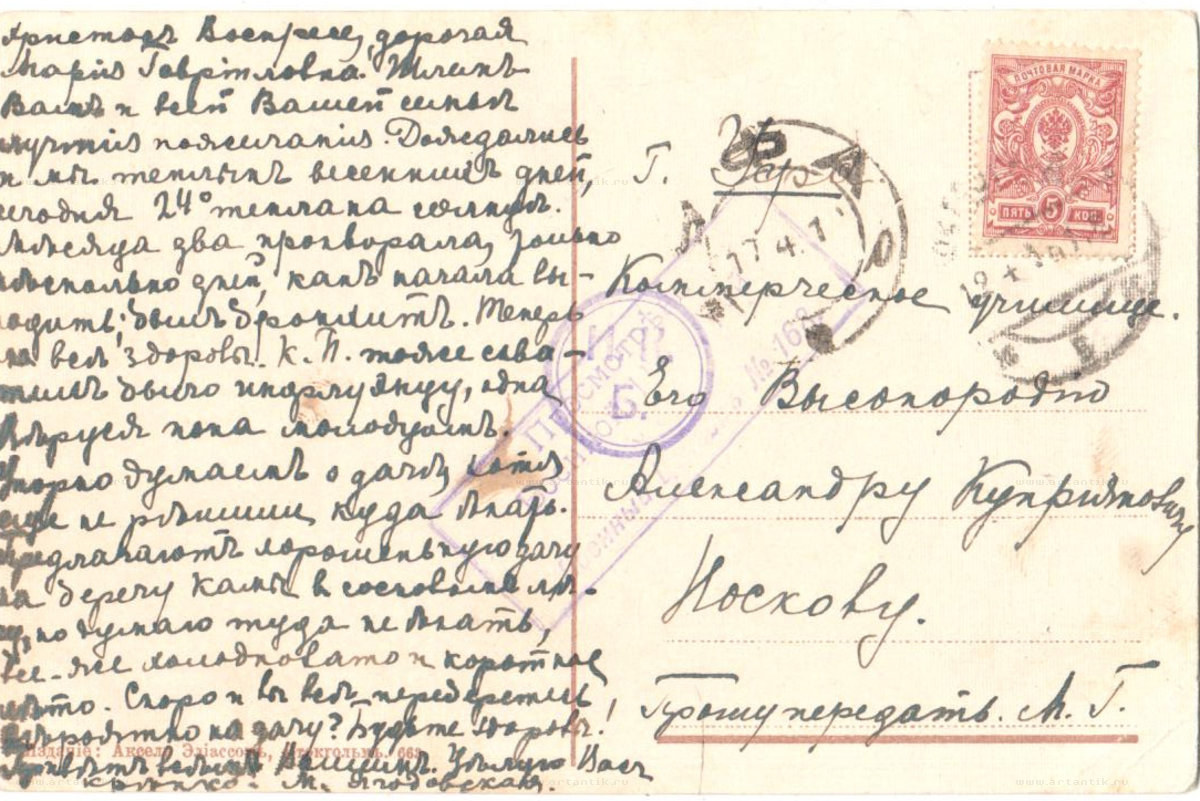 Христосъ Воскресе, дорогая
Марія Гавриловна. Шлемъ
Вамъ и всей Вашей семьѣ
лучшія пожеланія. Дождались
и мы теплыхъ весеннихъ дней,
сегодня 24° тепла на солнцѣ.
Мѣсяца два прохворала, только
нѣсколько дней, какъ начала вы-
ходить; былъ бронхитъ. Теперь
всѣ здоровы. К. П. тоже схва-
тилъ было инфлуэнцу, одна
Вѣруся пока молодцомъ.
Упорно думаемъ о дачѣ, хотя
еще не рѣшили, куда ѣхать.
Предлагаютъ хорошенькую дачу
на берегу Камы въ сосновомъ лѣ-
су, но думаю туда не ѣхать,
все-же холодновато и короткое
лѣто. Скоро и вы всѣ переберетесь,
вѣроятно на дачу? Будьте здоровы!
Изданіе: Аксель Эліассонъ, Стокгольмъ. 663
Привѣтъ всѣмъ Вашимъ. Цѣлую Васъ
крѣпко. М. Ягодовская.
ПОЧТОВАЯ МАРКА
5
ПЯТЬ КОП.
Г.
17 4. 17
Коммерческое училище.
Его Высокородію
Александру Купріяновичу
Носкову.
Прошу передать М. Г.
ПРОСМОТР
№ 168
www.artantik.ru